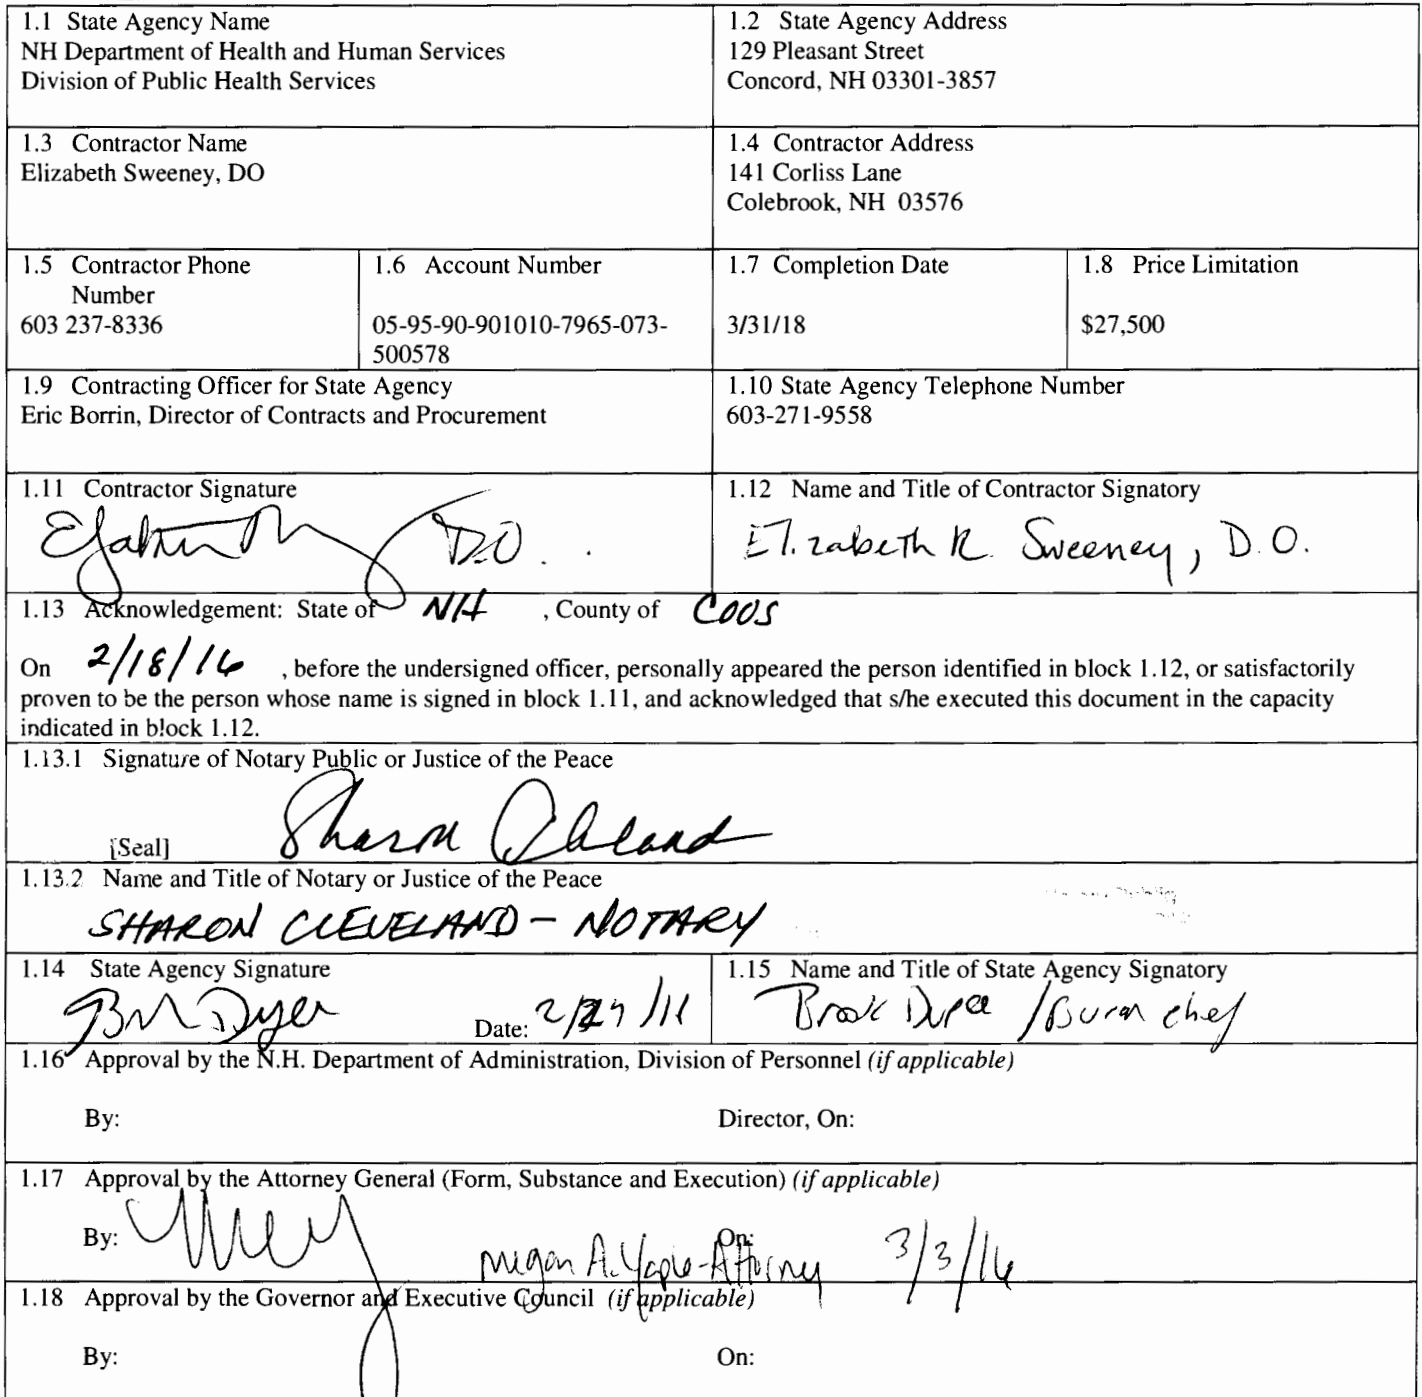 1.1 State Agency Name
NH Department of Health and Human Services
Division of Public Health Services
1.2 State Agency Address
129 Pleasant Street
Concord, NH 03301-3857
1.3 Contractor Name
Elizabeth Sweeney, DO
1.4 Contractor Address
141 Corliss Lane
Colebrook, NH 03576
1.5 Contractor Phone
Number
603 237-8336
1.6 Account Number
05-95-90-901010-7965-073-
500578
1.7 Completion Date
3/31/18
1.8 Price Limitation
$27,500
1.9 Contracting Officer for State Agency
Eric Borrin, Director of Contracts and Procurement
1.10 State Agency Telephone Number
603-271-9558
1.11 Contractor Signature
D.O.
1.12 Name and Title of Contractor Signatory
Elizabeth R. Sweeney, D.O.
1.13 Acknowledgement: State of NH , County of COOS
On 2/18/16 , before the undersigned officer, personally appeared the person identified in block 1.12, or satisfactorily
proven to be the person whose name is signed in block 1.11, and acknowledged that s/he executed this document in the capacity
indicated in block 1.12.
1.13.1 Signature of Notary Public or Justice of the Peace
[Seal] Sharon Cleveland
1.13.2 Name and Title of Notary or Justice of the Peace
SHARON CLEVELAND - NOTARY
1.14 State Agency Signature
Date:
1.15 Name and Title of State Agency Signatory
1.16 Approval by the N.H. Department of Administration, Division of Personnel (if applicable)
By: Director, On:
1.17 Approval by the Attorney General (Form, Substance and Execution) (if applicable)
By: On: 3/3/16
Megan A. Yaple - Attorney
1.18 Approval by the Governor and Executive Council (if applicable)
By: On: